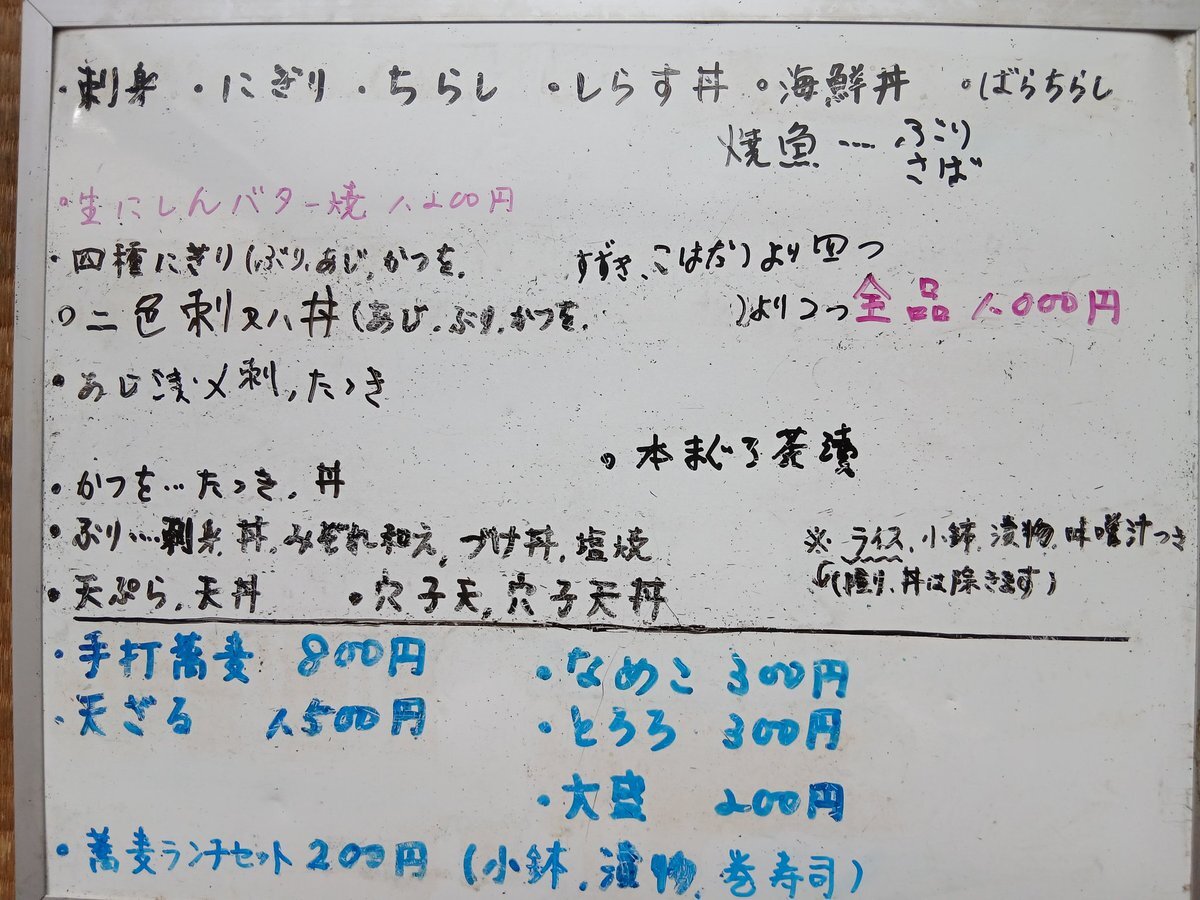 ・刺身 ・にぎり ・ちらし ・しらす丼 ・海鮮丼 ・ばらちらし
焼魚…ぶり
さば
・生にしんバター焼 1,200円
・四種にぎり(ぶり、あじ、かつを、 すずき、こはだ)より四つ
○二色刺又ハ丼(あじ、ぶり、かつを、 )より二つ 全品 1,000円
・あじ漬〆刺、たゝき
・本まぐろ茶漬
・かつを…たゝき、丼
・ぶり…刺身、丼、みぞれ和え、づけ丼、塩焼
※ライス、小鉢、漬物、味噌汁つき
(握り、丼は除きます)
・天ぷら、天丼 ・穴子天、穴子天丼
・手打蕎麦 800円 ・なめこ 300円
・天ざる 1,500円 ・とろろ 300円
・大盛 200円
・蕎麦ランチセット 200円 (小鉢、漬物、巻寿司)